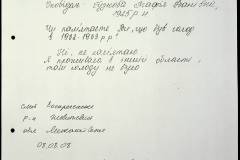 Оповідач Гуднова Марфа Іванівна,
1925 р.н
Чи пам'ятаєте Ви, що був голод
в 1932-1933 р.р?
Ні, не пам'ятаю
Я проживала в іншій області,
там голоду не було
село Воскресенське
р-н
обл
08.08.08